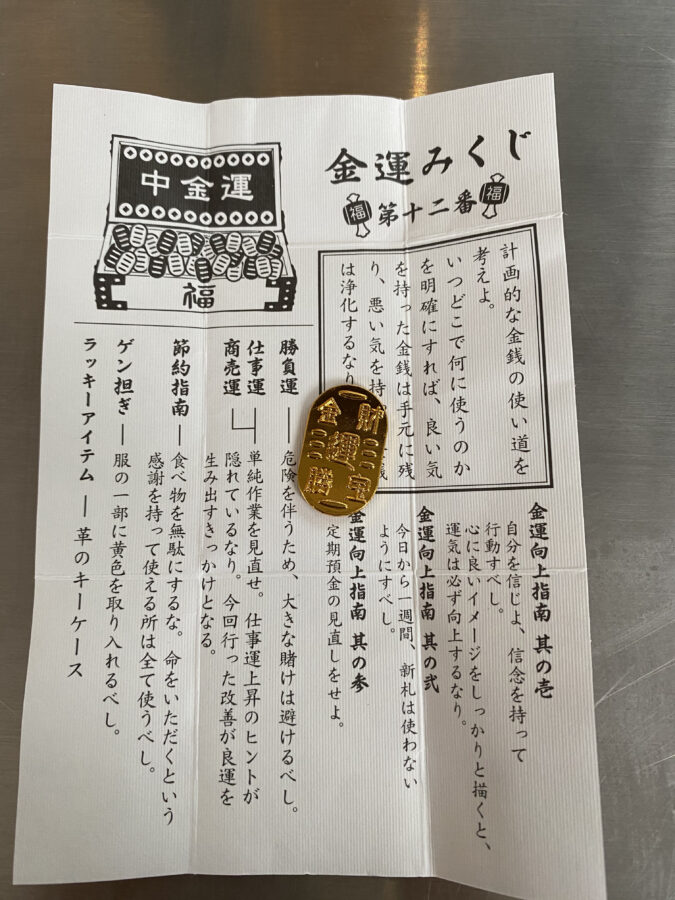 金運みくじ
福
第十二番
福
中金運
福
計画的な金銭の使い道を
考えよ。
いつどこで何に使うのか
を明確にすれば、良い気
を持った金銭は手元に残
り、悪い気を持
は浄化するなり
金運向上指南 其の壱
自分を信じよ、信念を持って
行動すべし。
心に良いイメージをしっかりと描くと、
運気は必ず向上するなり。
金運向上指南 其の弐
今日から一週間、新札は使わない
ようにすべし。
金運向上指南 其の参
定期預金の見直しをせよ。
勝負運 ― 危険を伴うため、大きな賭けは避けるべし。
仕事運
商売運
単純作業を見直せ。仕事運上昇のヒントが
隠れているなり。今回行った改善が良運を
生み出すきっかけとなる。
節約指南 ― 食べ物を無駄にするな。命をいただくという
感謝を持って使える所は全て使うべし。
ゲン担ぎ ― 服の一部に黄色を取り入れるべし。
ラッキーアイテム ― 革のキーケース
財
宝
運
金
勝